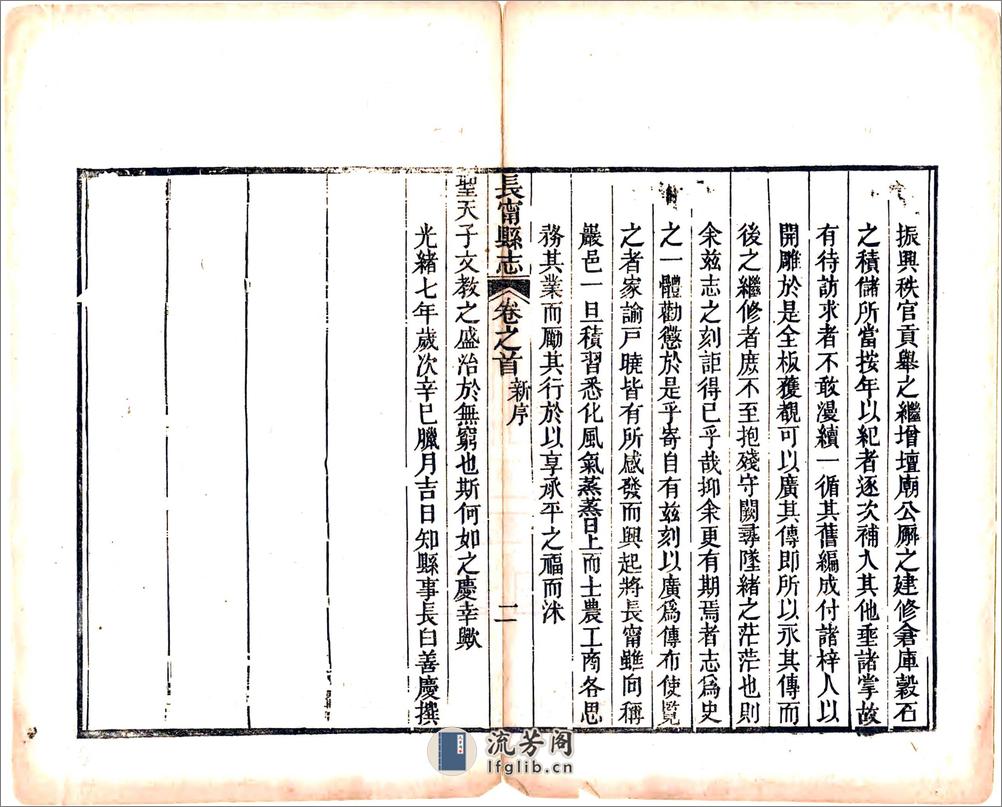 振興秩官貢舉之繼增壇廟公廨之建修倉庫穀石
之積儲所當按年以紀者逐次補入其他垂諸掌故
有待訪求者不敢漫續一循其舊編成付諸梓人以
開雕於是全板獲觀可以廣其傳即所以永其傳而
後之繼修者庶不至抱殘守闕尋墜緒之茫茫也則
余玆志之刻詎得已乎哉抑余更有期焉者志爲史
之一體勸懲於是乎寄自有玆刻以廣爲傳布使覧
之者家諭戸曉皆有所感發而興起將長甯雖向稱
嚴邑一旦積習悉化風氣蒸蒸日上而士農工商各思
務其業而勵其行於以享承平之福而沐
長甯縣志 卷之首 新序 二
聖天子文教之盛治於無窮也斯何如之慶幸歟
光緒七年歲次辛巳臘月吉日知縣事長白善慶撰
流芳阁
lfglib.cn